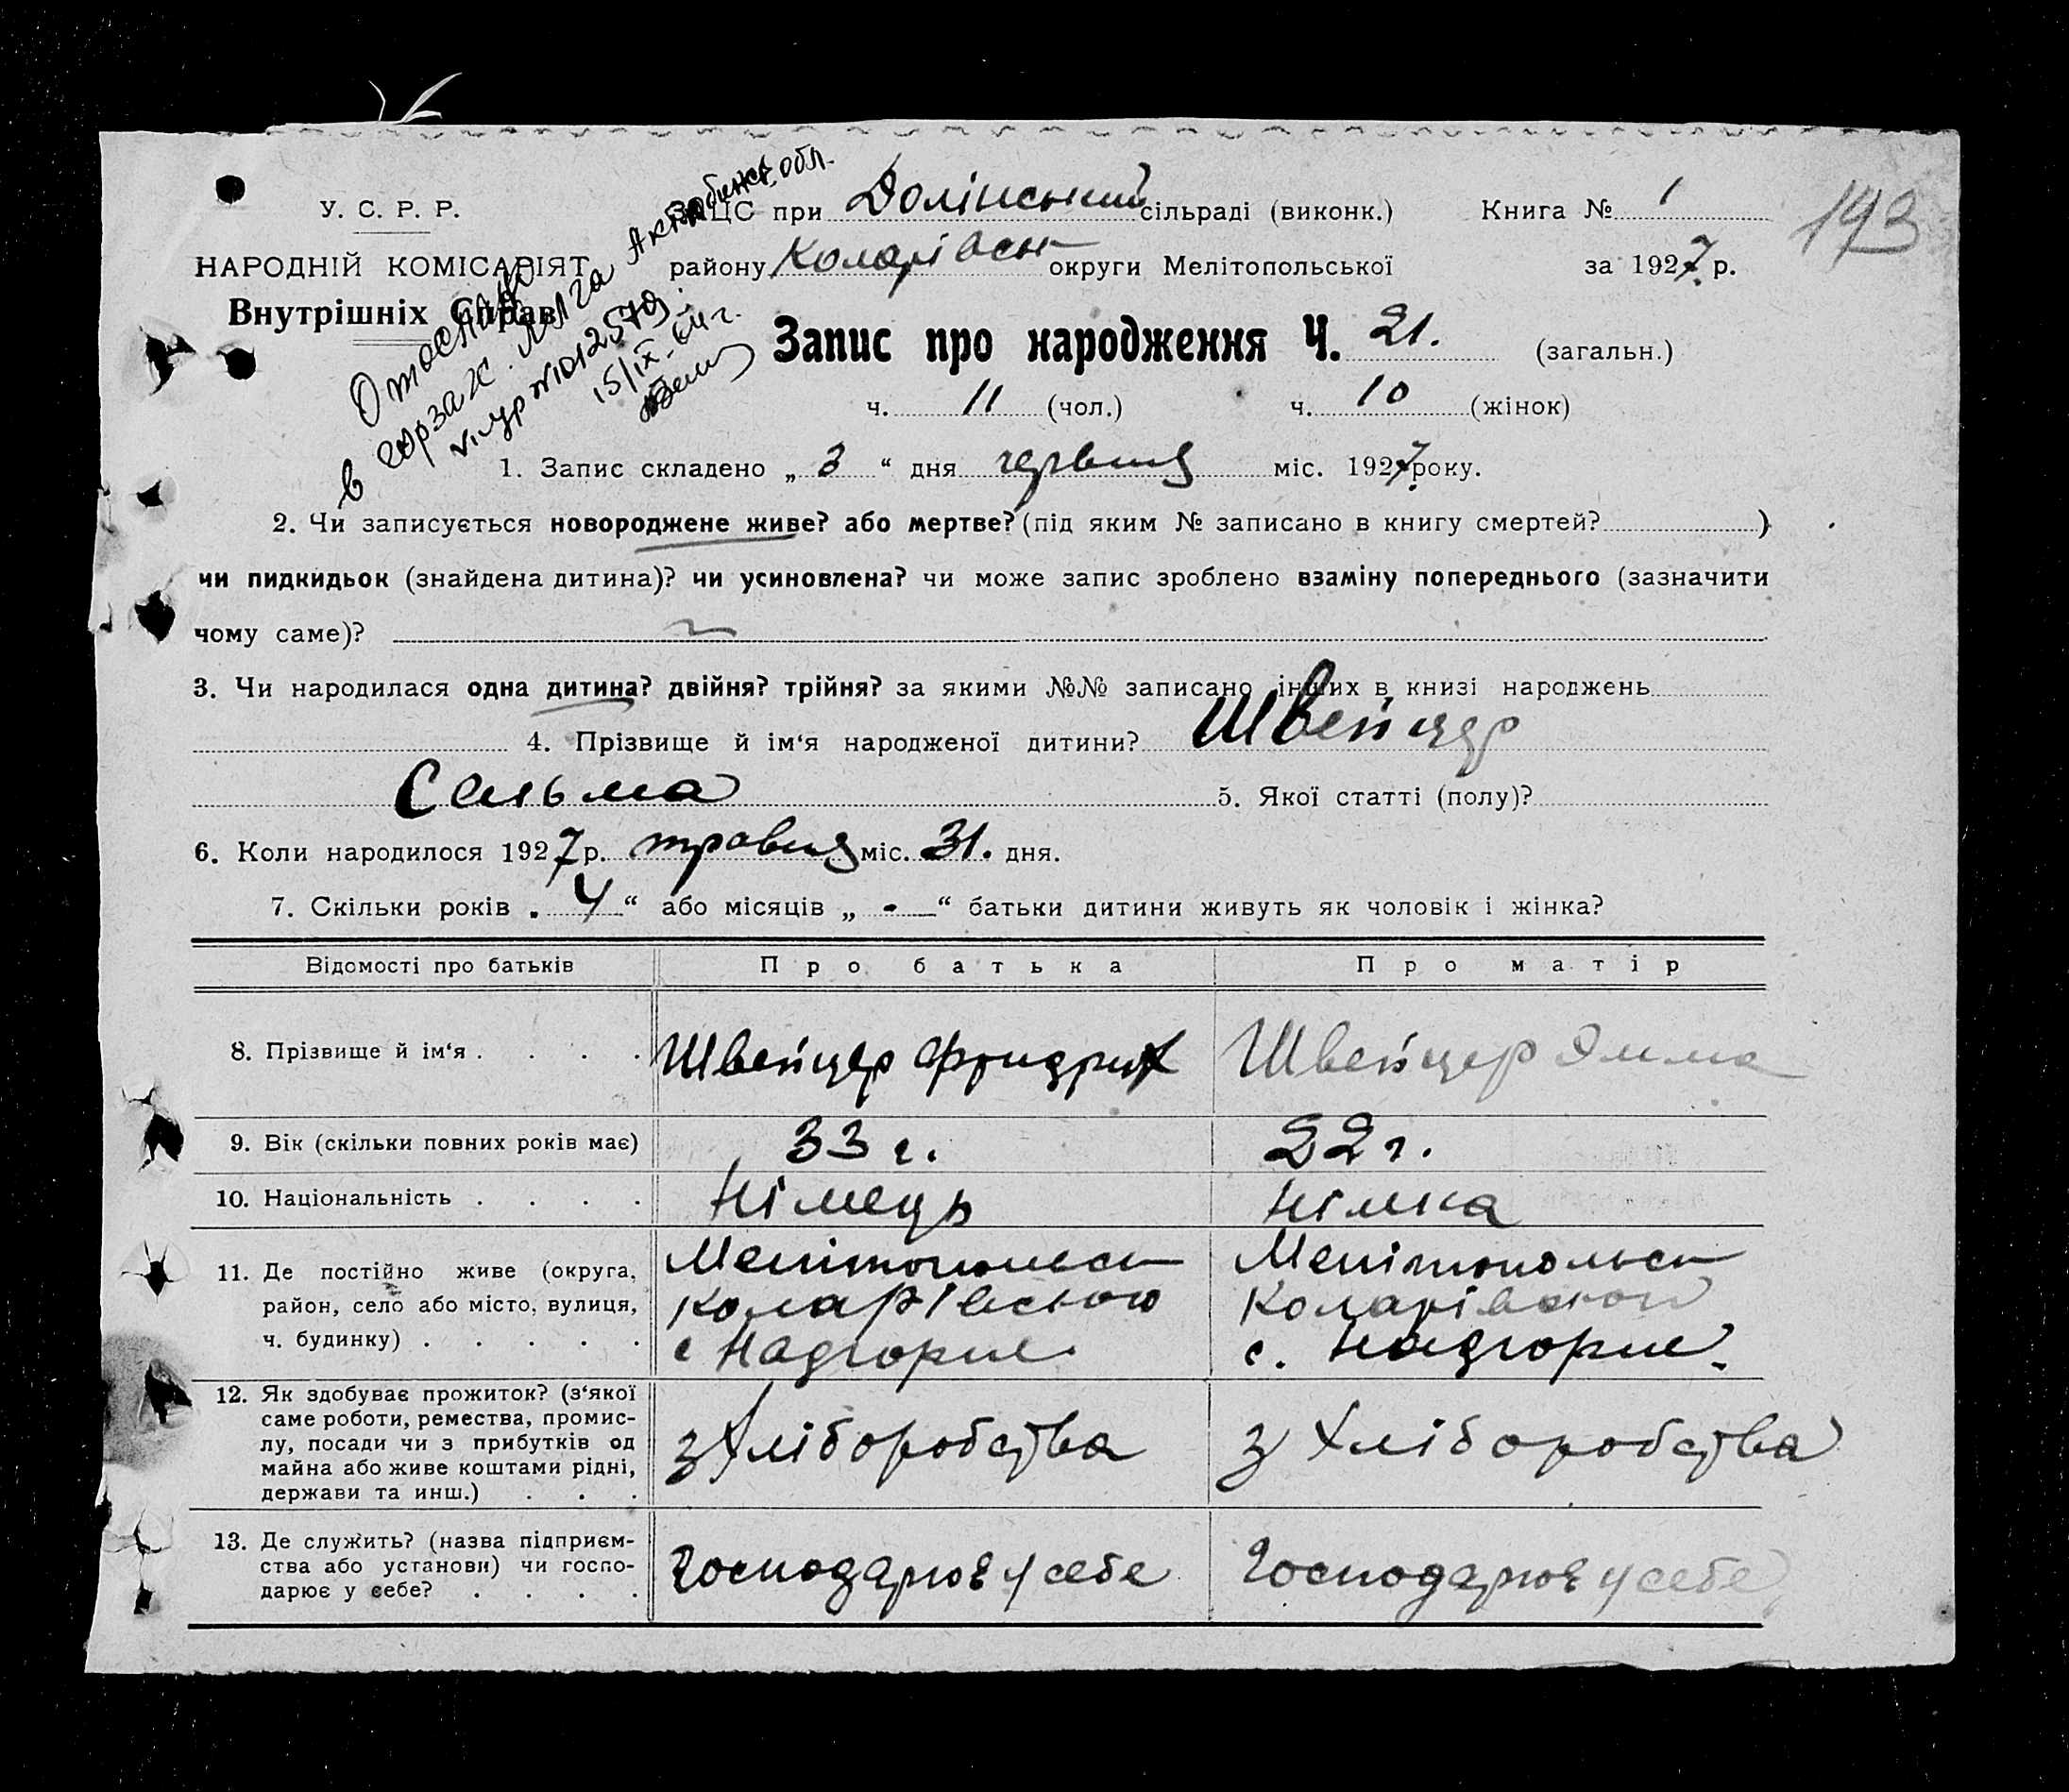 У. С. Р. Р.
НАРОДНІЙ КОМІСАРІЯТ
Внутрішніх Справ
в Актюбинск. обл.
VI лур №1012579
15/IX-64 г.
ЗАЦС при Долінський сільраді (виконк.) Книга № 1
193
району Коларівськ округи Мелітопольської за 1927 р.
Запис про народження Ч. 21. (загальн.)
ч. 11 (чол.) ч. 10 (жінок)
1. Запис складено „ 3 “ дня червня міс. 1927 року.
2. Чи записується новороджене живе? або мертве? (під яким № записано в книгу смертей? )
чи пидкидьок (знайдена дитина)? чи усиновлена? чи може запис зроблено взаміну попереднього (зазначити
чому саме)?
3. Чи народилася одна дитина? двійня? трійня? за якими №№ записано інших в книзі народжень
4. Прізвище й ім‘я народженої дитини? Швейцер
Сельма 5. Якої статті (полу)?
6. Коли народилося 1927 р. травня міс. 31. дня.
7. Скільки років „ 4 “ або місяців „ - “ батьки дитини живуть як чоловік і жінка?
Відомості про батьків Про батька Про матір
8. Прізвище й ім‘я . . . . Швейцер Фридрих Швейцер Эмма
9. Вік (скільки повних років має) 33 г. 22 г.
10. Національність . . . . Німець Німка
11. Де постійно живе (округа, Мелітопольськ Мелітопольськ
район, село або місто, вулиця, Коларівского Коларівского
ч. будинку) . . . . . с Надгорне. с. Надгорне.
12. Як здобуває прожиток? (з‘якої
саме роботи, ремества, промис-
лу, посади чи з прибутків од з Хліборобства з Хліборобства
майна або живе коштами рідні,
держави та инш.) . . .
13. Де служить? (назва підприєм-
ства або установи) чи госпо- Господарює у себе Господарює у себе
дарює у себе? . . . .